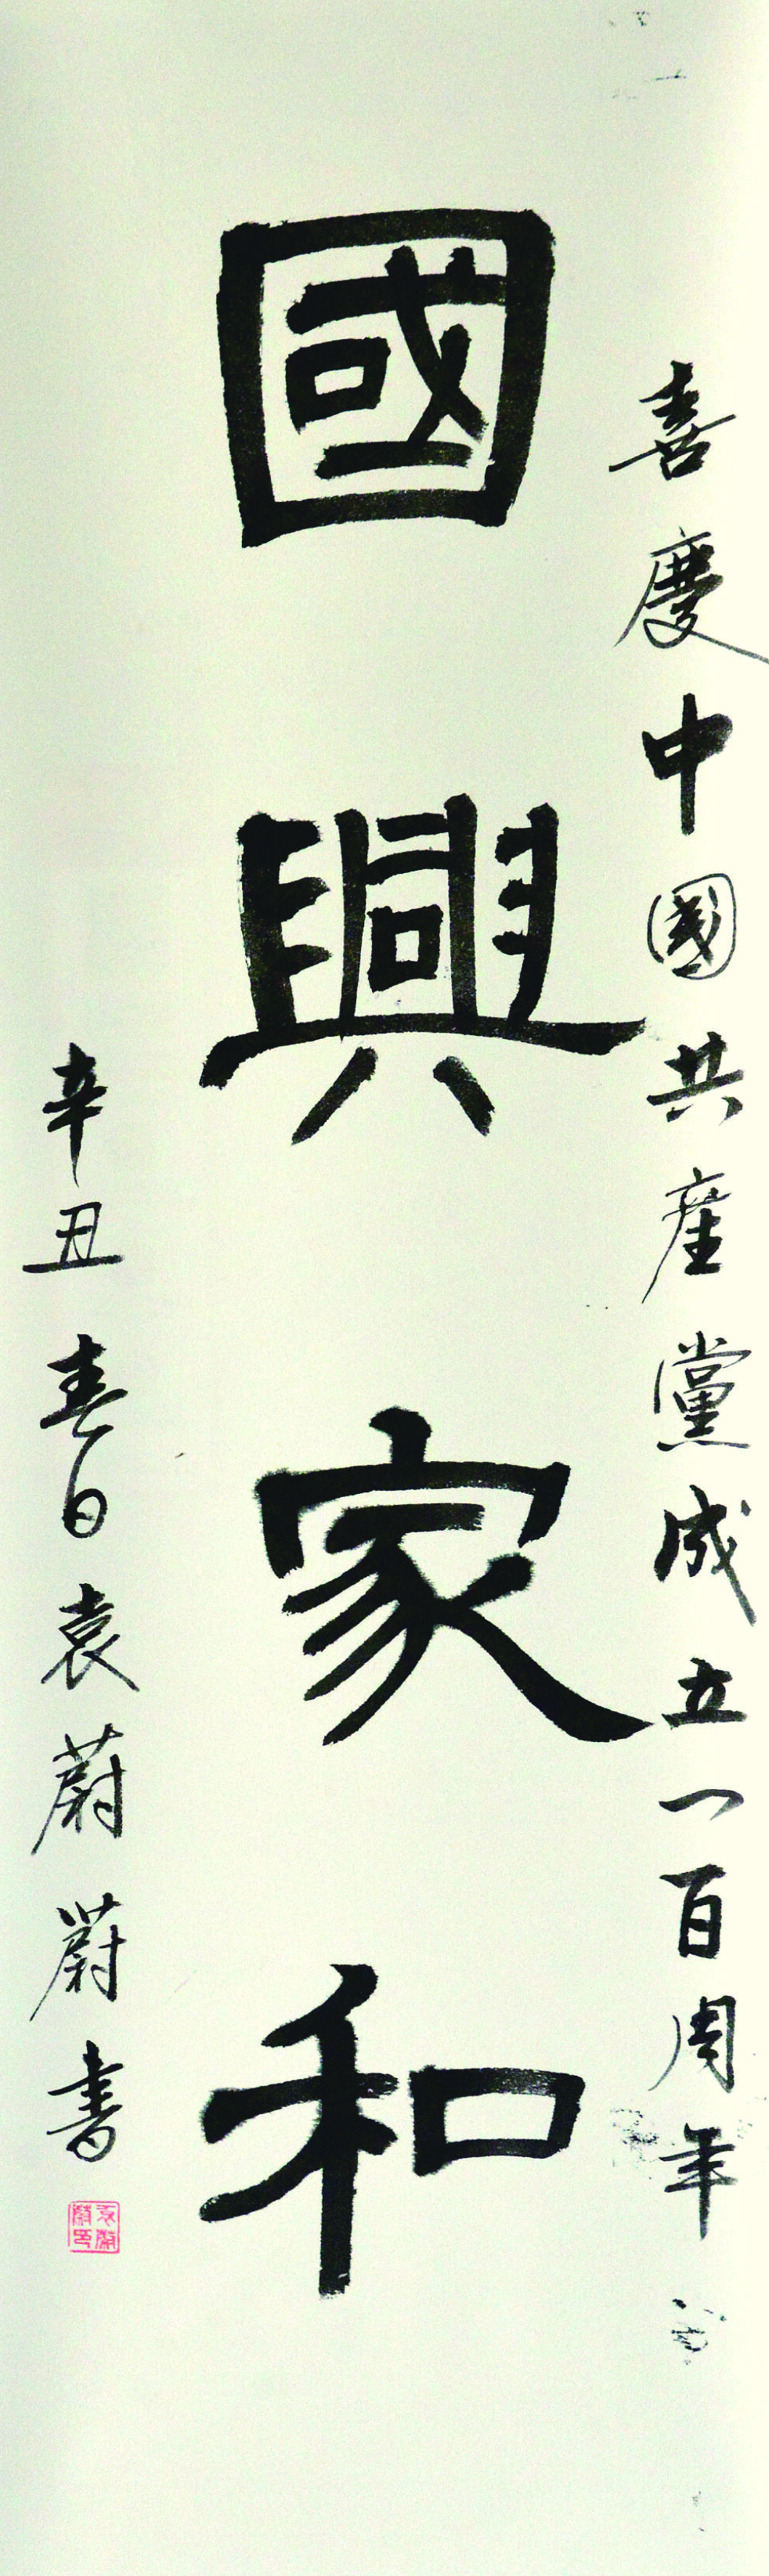 喜慶中國共産黨成立一百周年
國興家和
辛丑春日袁蔚蔚書